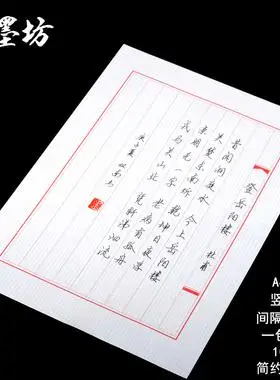 墨坊
登岳阳楼 杜甫
昔闻洞庭水 今上岳阳楼
吴楚东南坼 乾坤日夜浮
亲朋无一字 老病有孤舟
戎马关山北 凭轩涕泗流
A
竖
间隔
一
1
简约